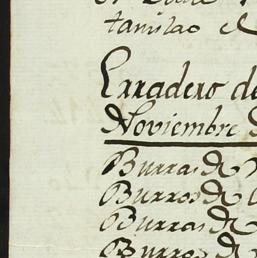 tanilao el
Erradero de
Noviembre d
Burras de
Burros de
Burras de
Burros de